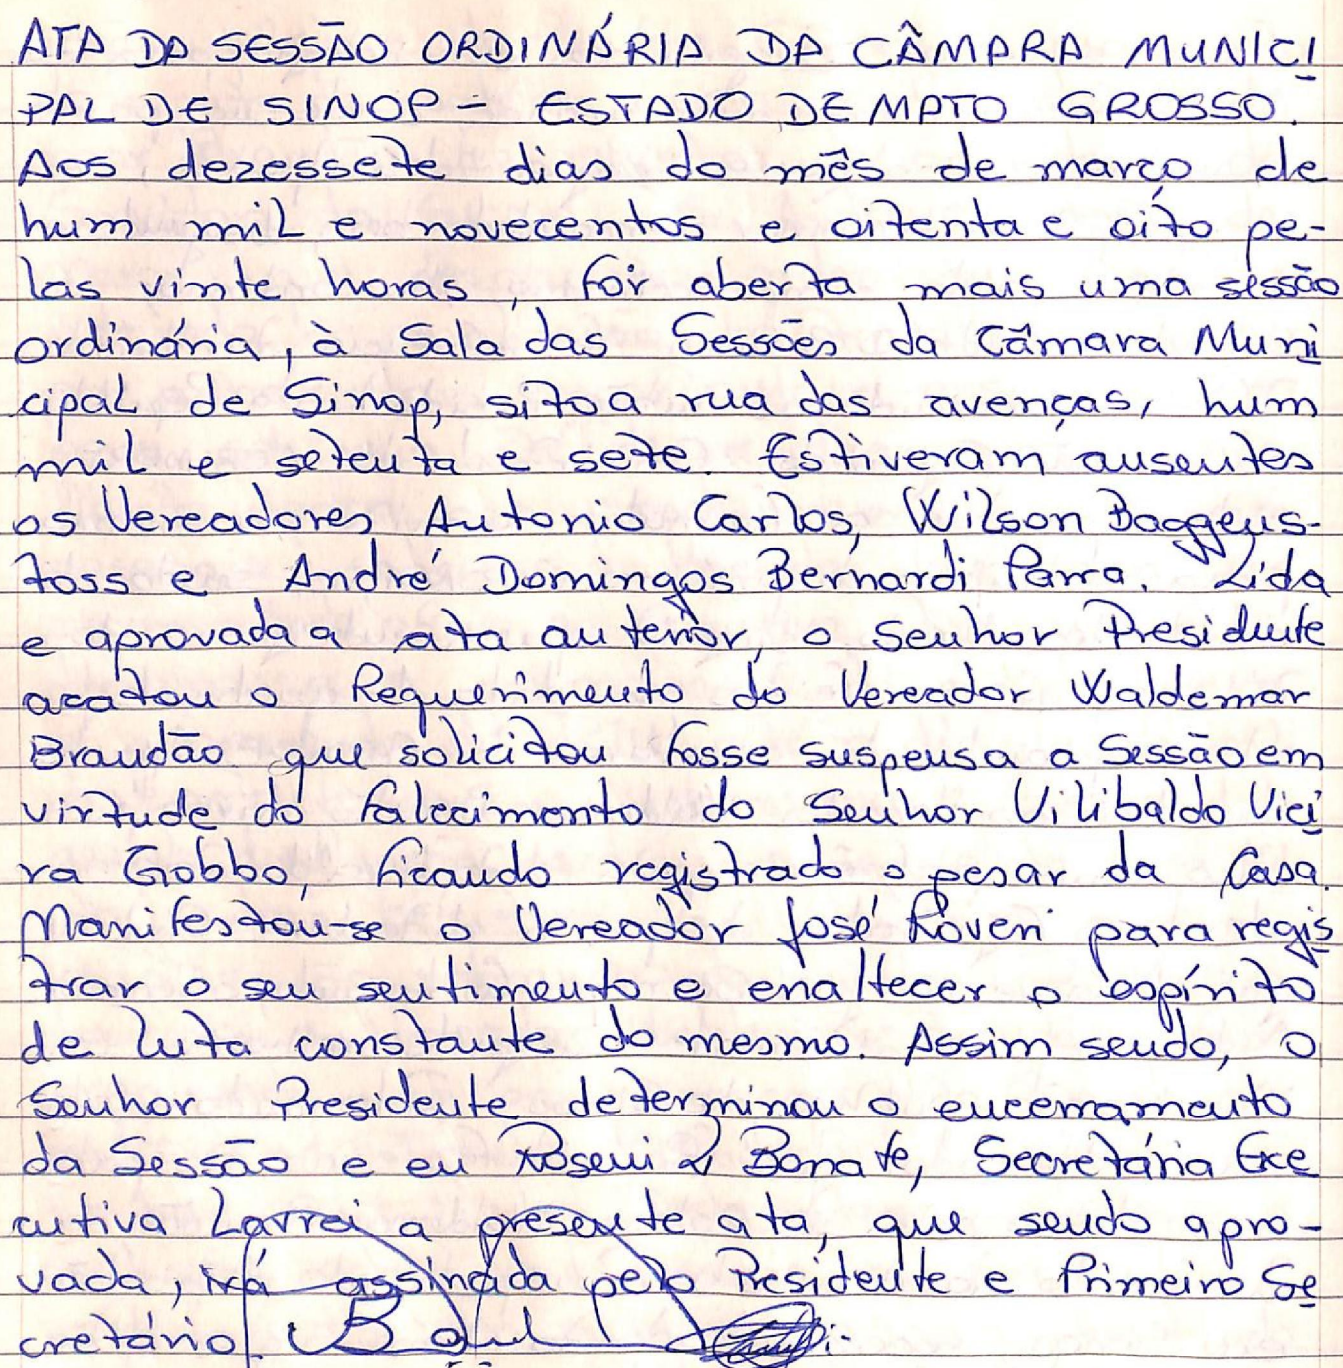 ATA DA SESSÃO ORDINÁRIA DA CÂMARA MUNICI
PAL DE SINOP - ESTADO DE MATO GROSSO.
Aos dezessete dias do mês de março de
hum mil e novecentos e oitenta e oito pe-
las vinte horas, foi aberta mais uma sessão
ordinária, à Sala das Sessões da Câmara Muni
cipal de Sinop, sito a rua das avenças, hum
mil e setenta e sete. Estiveram ausentes
os Vereadores Antonio Carlos, Wilson Baggens-
toss e André Domingos Bernardi Parra. Lida
e aprovada a ata anterior, o Senhor Presidente
acatou o Requerimento do Vereador Waldemar
Brandão que solicitou fosse suspensa a Sessão em
virtude do falecimento do Senhor Vilibaldo Viei
ra Gobbo, ficando registrado o pesar da Casa.
Manifestou-se o Vereador José Roveri para regis
trar o seu sentimento e enaltecer o espírito
de luta constante do mesmo. Assim sendo, o
Senhor Presidente determinou o encerramento
da Sessão e eu Roseni Bonate, Secretária Exe
cutiva Lavrei a presente ata, que sendo apro-
vada, irá assinada pelo Presidente e Primeiro Se
cretário.